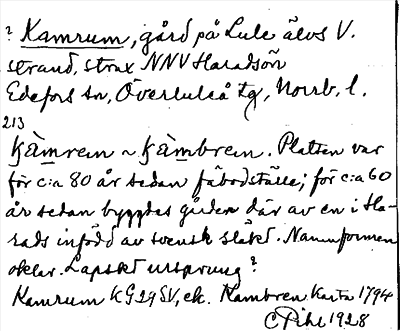 ? Kamrum, gård på Lule älvs V.
strand, strax NNV Haradsön
Edefors sn, Överluleå tg, Norrb. l.
213
Kàmrem ~ Kàmbrem. Platsen var
för c:a 80 år sedan fäbodställe; för c:a 60
år sedan byggdes gården där av en i Ha-
rads infödd av svensk släkt. Namnformen
oklar. Lapskt ursprung?
Kamrum KG29SV, ek. Kambren Karta 1794
C Pihl 1928